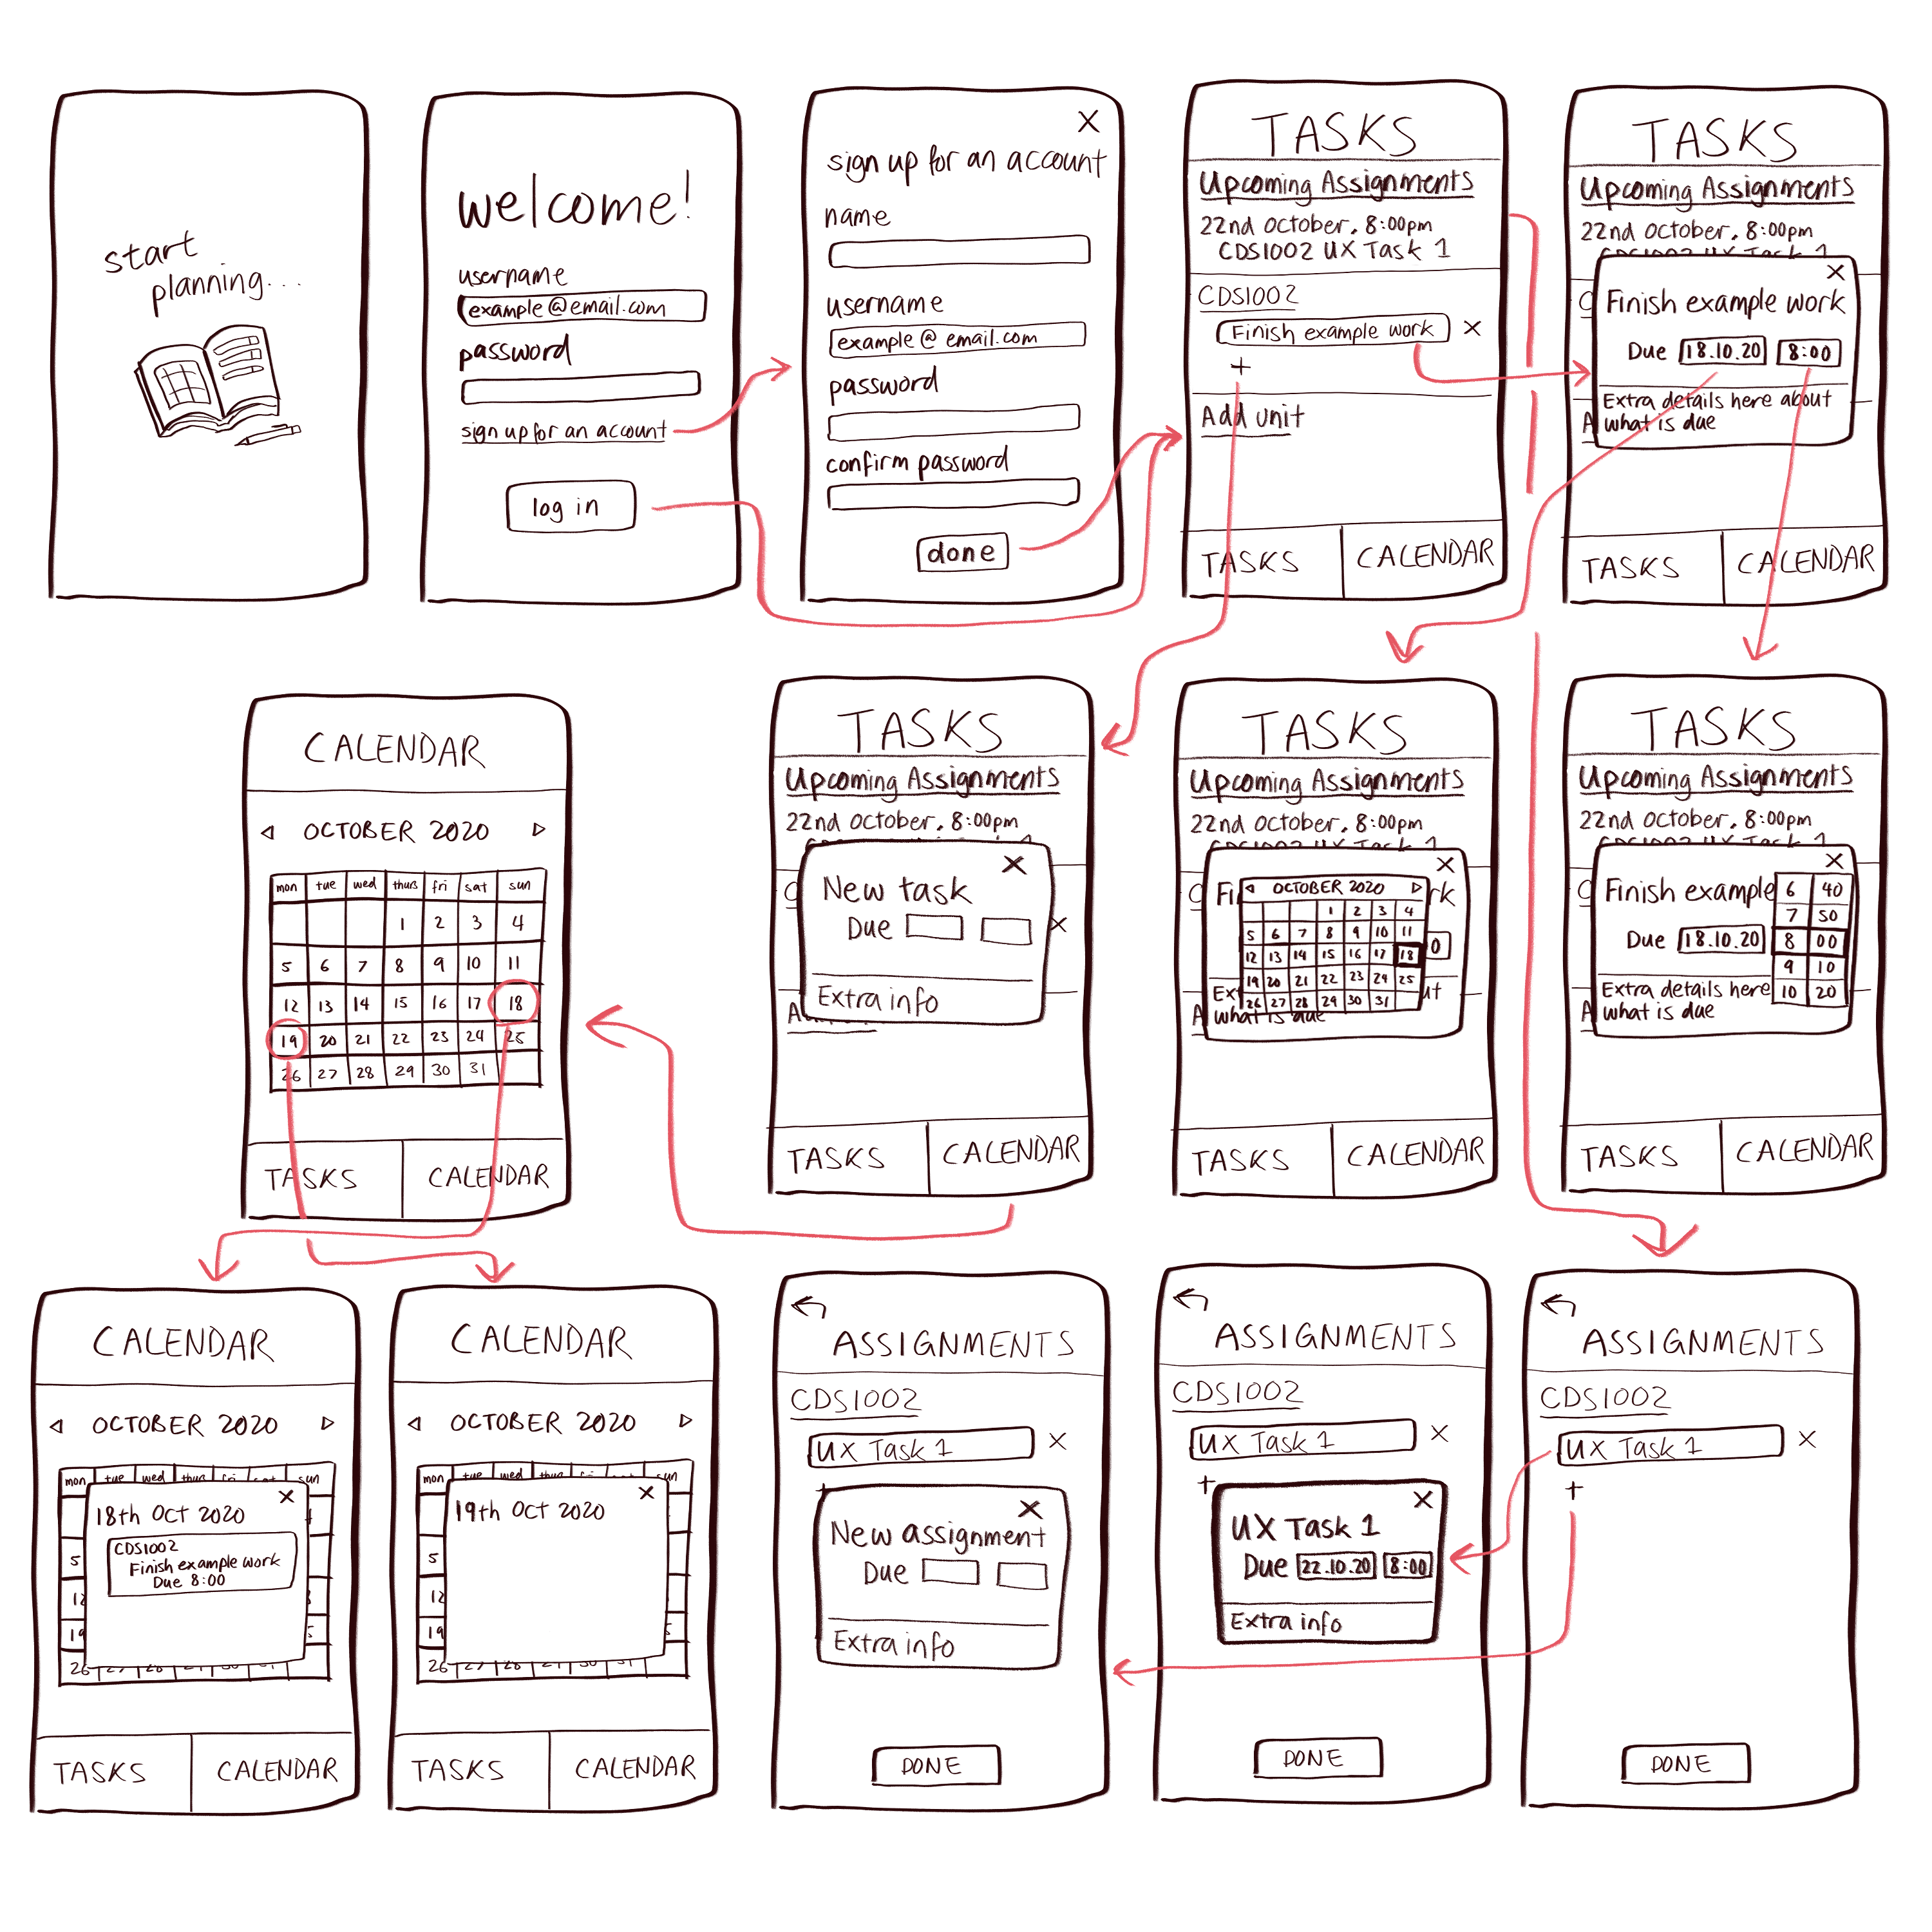 start
planning...
welcome!
username
example@email.com
password
sign up for an account
log in
X
sign up for an account
name
username
example@email.com
password
confirm password
done
TASKS
Upcoming Assignments
22nd October, 8:00pm
CDS1002 UX Task 1
CDS1002
Finish example work X
+
Add unit
TASKS CALENDAR
TASKS
Upcoming Assignments
22nd October, 8:00pm
CDS1002 UX Task 1
X
Finish example work
Due 18.10.20 8:00
Extra details here about
A what is due
TASKS CALENDAR
CALENDAR
OCTOBER 2020
mon tue wed thurs fri sat sun
1 2 3 4
5 6 7 8 9 10 11
12 13 14 15 16 17 18
19 20 21 22 23 24 25
26 27 28 29 30 31
TASKS CALENDAR
TASKS
Upcoming Assignments
22nd October, 8:00pm
X
New task
Due
X
Extra info
TASKS CALENDAR
TASKS
Upcoming Assignments
22nd October, 8:00pm
CDS1002 UX Task 1
X
OCTOBER 2020
1 2 3 4
5 6 7 8 9 10 11
12 13 14 15 16 17 18
19 20 21 22 23 24 25
26 27 28 29 30 31
what is due
TASKS CALENDAR
TASKS
Upcoming Assignments
22nd October, 8:00pm
CDS1002 UX Task 1
X
Finish example
Due 18.10.20
Extra details here
A what is due
6 40
7 50
8 00
9 10
10 20
TASKS CALENDAR
CALENDAR
OCTOBER 2020
mon tue wed thurs fri sat sun
X
18th Oct 2020
CDS1002
Finish example work
Due 8:00
5
12
19
26 27 28 29 30 31
TASKS CALENDAR
CALENDAR
OCTOBER 2020
mon tue wed thurs fri sat sun
X
19th Oct 2020
5
12
19
26 27 28 29 30 31
TASKS CALENDAR
ASSIGNMENTS
CDS1002
UX Task 1 X
+
X
New assignment
Due
Extra info
DONE
ASSIGNMENTS
CDS1002
UX Task 1 X
+
X
UX Task 1
Due 22.10.20 8:00
Extra info
DONE
ASSIGNMENTS
CDS1002
UX Task 1 X
+
DONE